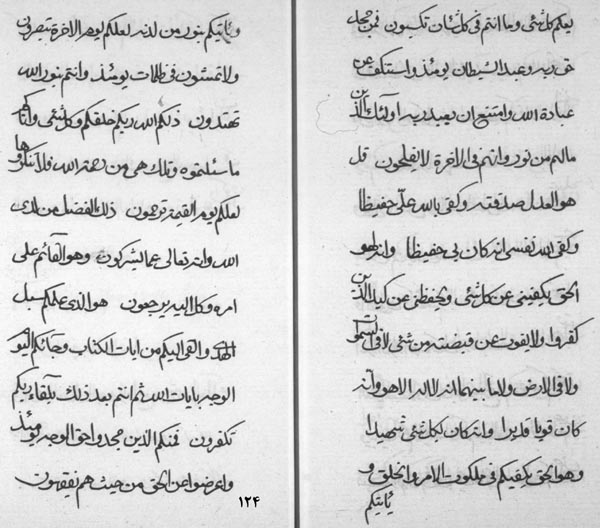 يعلم كل شئ وما انتم فى كل شان تكسبون فمن جهل
حق ربه وعبد الشيطان يومئذ واستكف عن
عبادة الله وامتنع ان يعبد ربه اولئك الذين
مالهم من نور وانهم فى الاخرة لا يفلحون قل
هو العدل صدقته وكفى بالله علىّ حفيظا
وكفى لله نفسى انه كان بى حفيظا وانه لهو
الحق يكفينى عن كل شئ ويحفظنى عن كيد الذين
كفروا ولا يفوت عن قبضته من شئ لا فى السموات
ولا فى الارض ولا ما بينهما انه لا اله الا هو وانه
كان قويا قديرا وانه كان لكل شئ شهيدا
وهو الحق يكفيكم فى ملكوت الامر والخلق و
ياتيكم
وياتيكم بنور من لدنه لعلكم يوم الاخرة تبصرون
ولا تمشون فى ظلمات يومئذ وانتم بنور الله
تهتدون ذلكم الله ربكم خلقكم وكل شئ واتاكم
ما سئلتموه وتلك هى من رحمة الله فلا تنكروها
لعلكم يوم القيمة ترحمون ذلك الفضل من لدى
الله وانه تعالى عما يشركون وهو القائم على
امره وكل اليه يرجعون هو الذى علمكم سبل
والقى اليكم من ايات الكتاب وجائكم اليوم
الوجه بايات الله ثم انتم بعد ذلك بلقاء ربكم
تكفرون فمنكم الذين جحدوا حق الوجه يومئذ
واعرضوا عن الحق من حيث هم يفقهون
۱۲۴